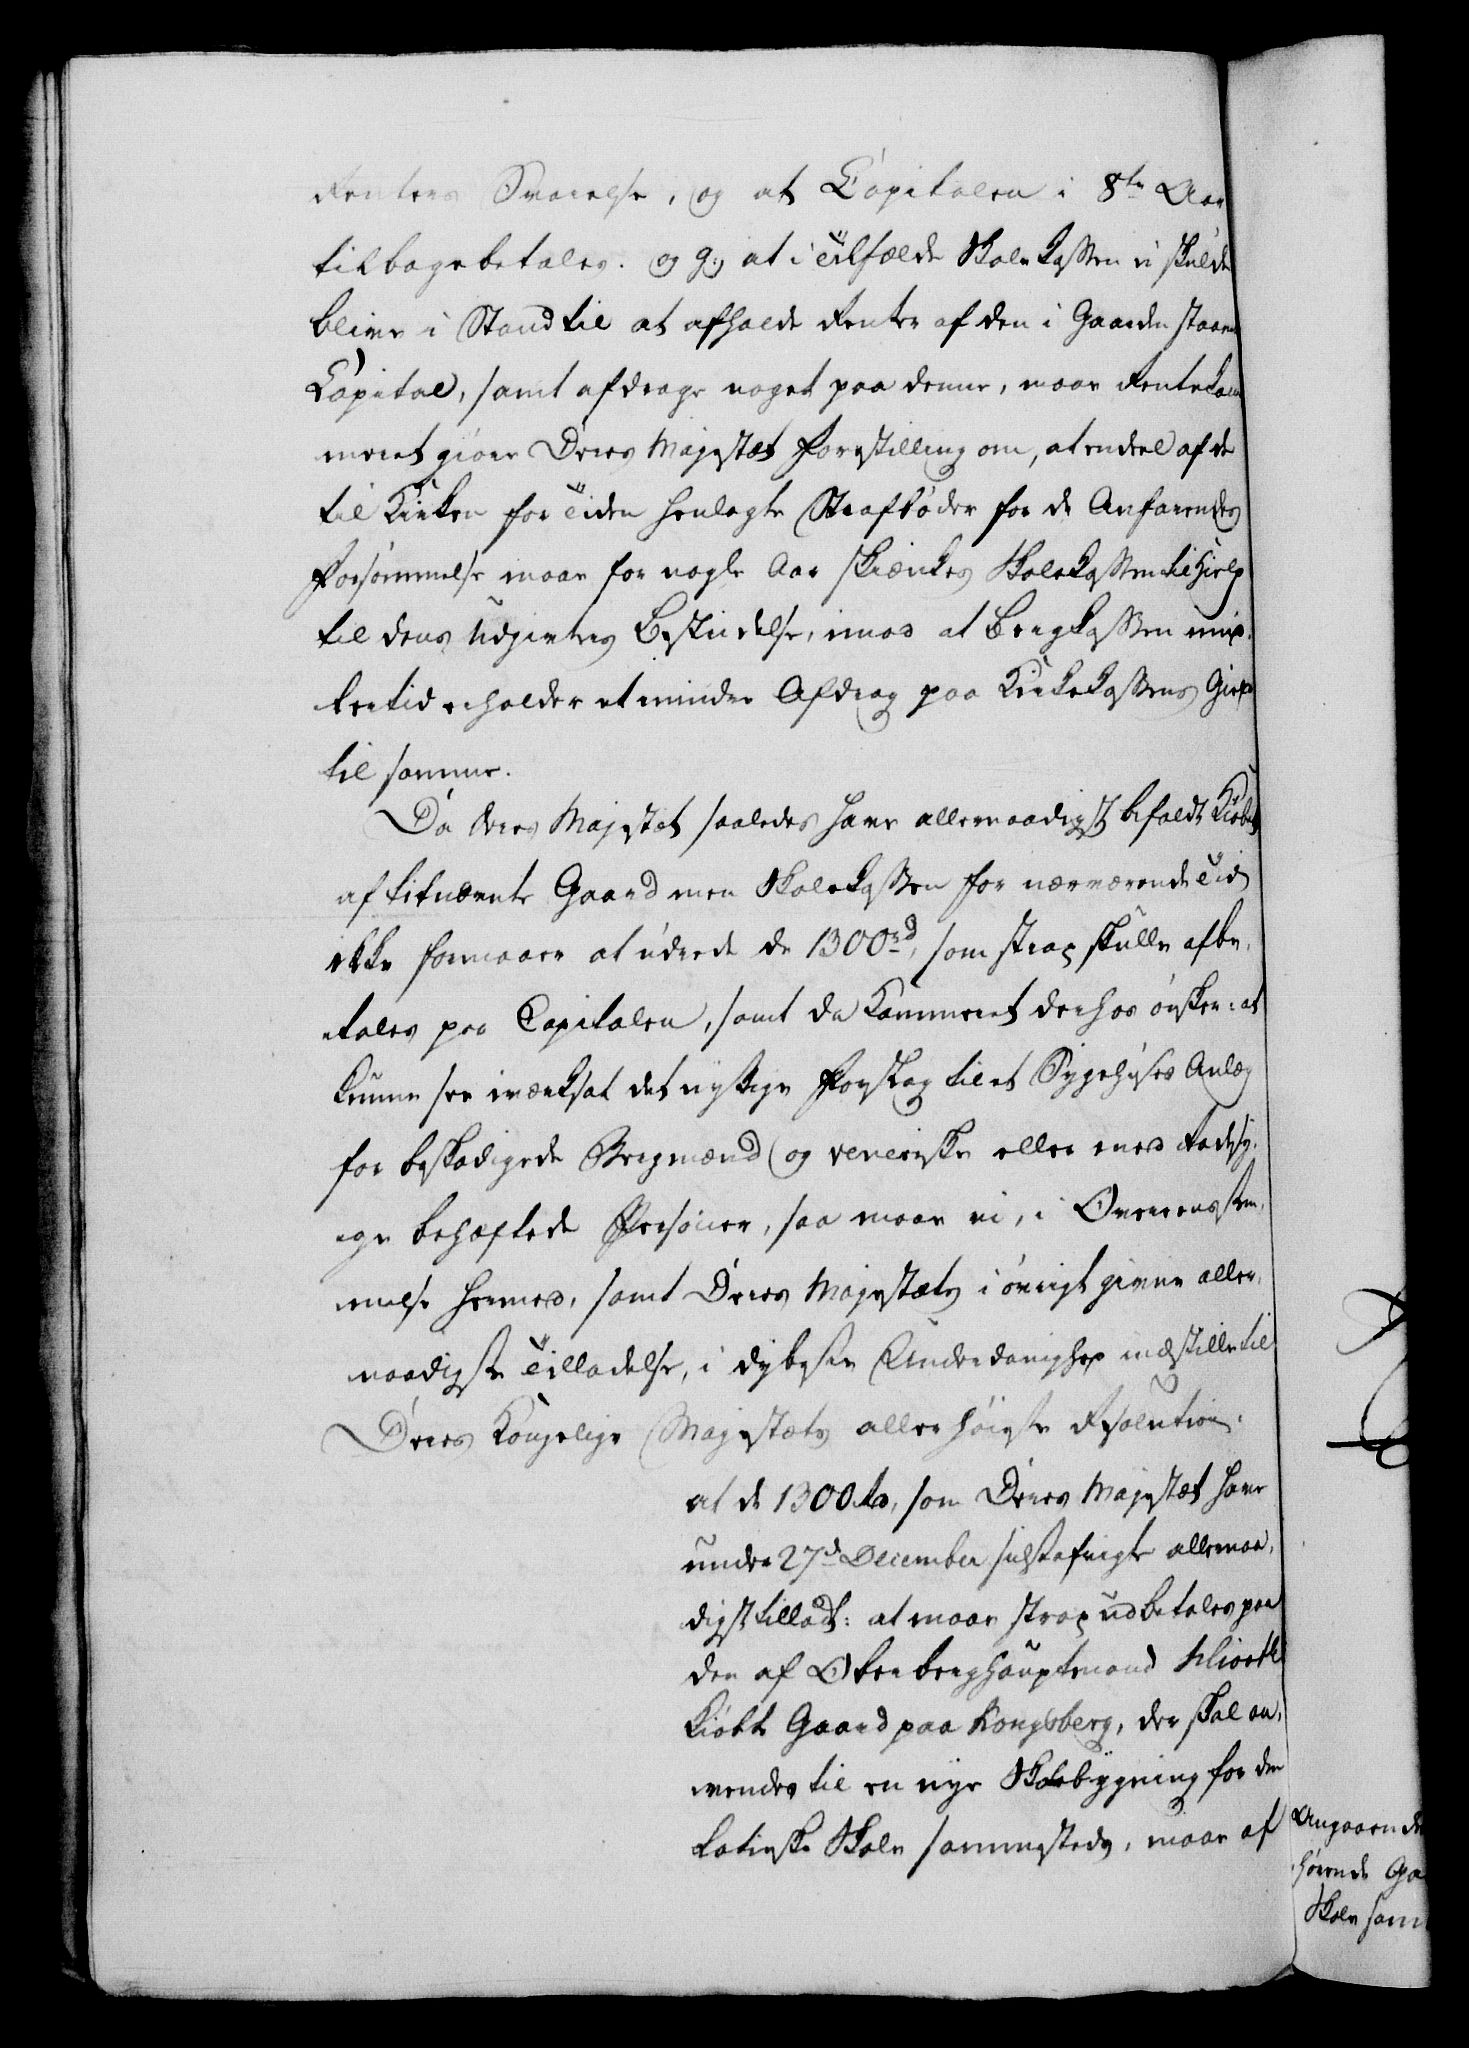 Renters Svarelse, og at Capitalen i 8te Aar
tilbagebetales. og g., at i Tilfælde Skolekassen ei skulde
blive i Stand til at afholde Renter af den i Gaarden staaende
Capital, samt afdrage noget paa denne, maae Rentekam
meret giøre Deres Majestæt Forestilling om, at endeel af de
til Kirken for Tiden henlagte Strafbøder for de Anfarendes
Forsømmelse maae for nogle Aar skienkes Skolekassen til Hielp
til dens Udgivters Bestridelse, imod at Bergkassen imid,
lertid erholder et mindre Afdrag paa Kirkekassens Gield
til samme.
Da Deres Majestæt saaledes have allernaadigst befaldt Kiøbet
af bitnævnte Gaard men Skolekassen for nærværende Tid
ikke formaaer at udrede de 1300rd, som strax skulle afbe,
tales paa Capitalen, samt da Kammeret derhos ønsker: at
kunne see iværksat det nyttige Forslag til et Sygehuses Anlæg
for beskadigede Bergmænd og veneriske eller med Radesy,
ge behæftede Personer, saa maae vi, i Overeensstem,
melse hermed, samt Deres Majestæts i øvrigt givne aller,
naadigste Tilladelse, i dybeste Underdanighed indstille til
Deres Kongelige Majestæts allerhøieste Resolution.
at de 1300 rd, som Deres Majestæt have
under 27d December sidstafvigte allernaa,
digst tilladt: at maae strax udbetales paa
den af Oberberghauptmand Hiorth
kiøbte Gaard paa Kongsberg, der skal an,
vendes til en nye Skolebygning for den
latinske Skole sammesteds, maae af
Angaaende
hørende Ga
Skole sam